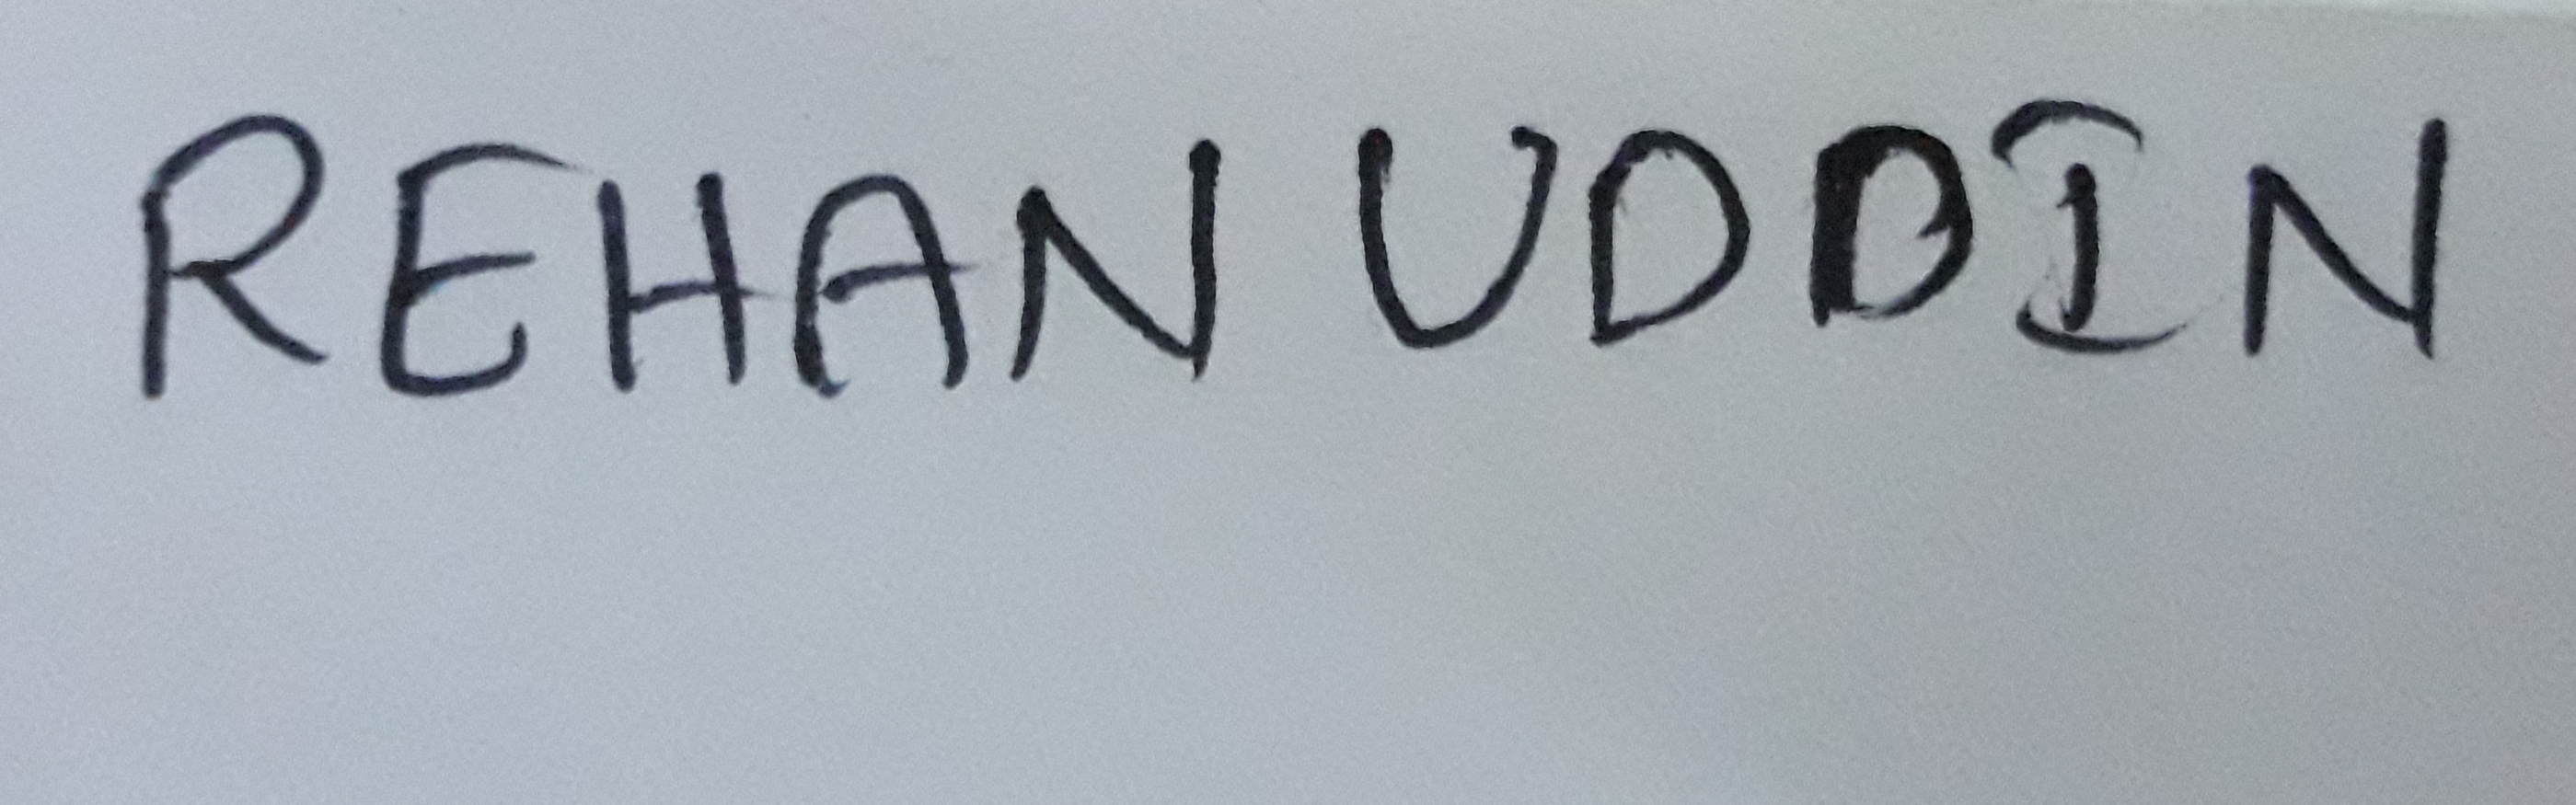 REHAN UDDIN